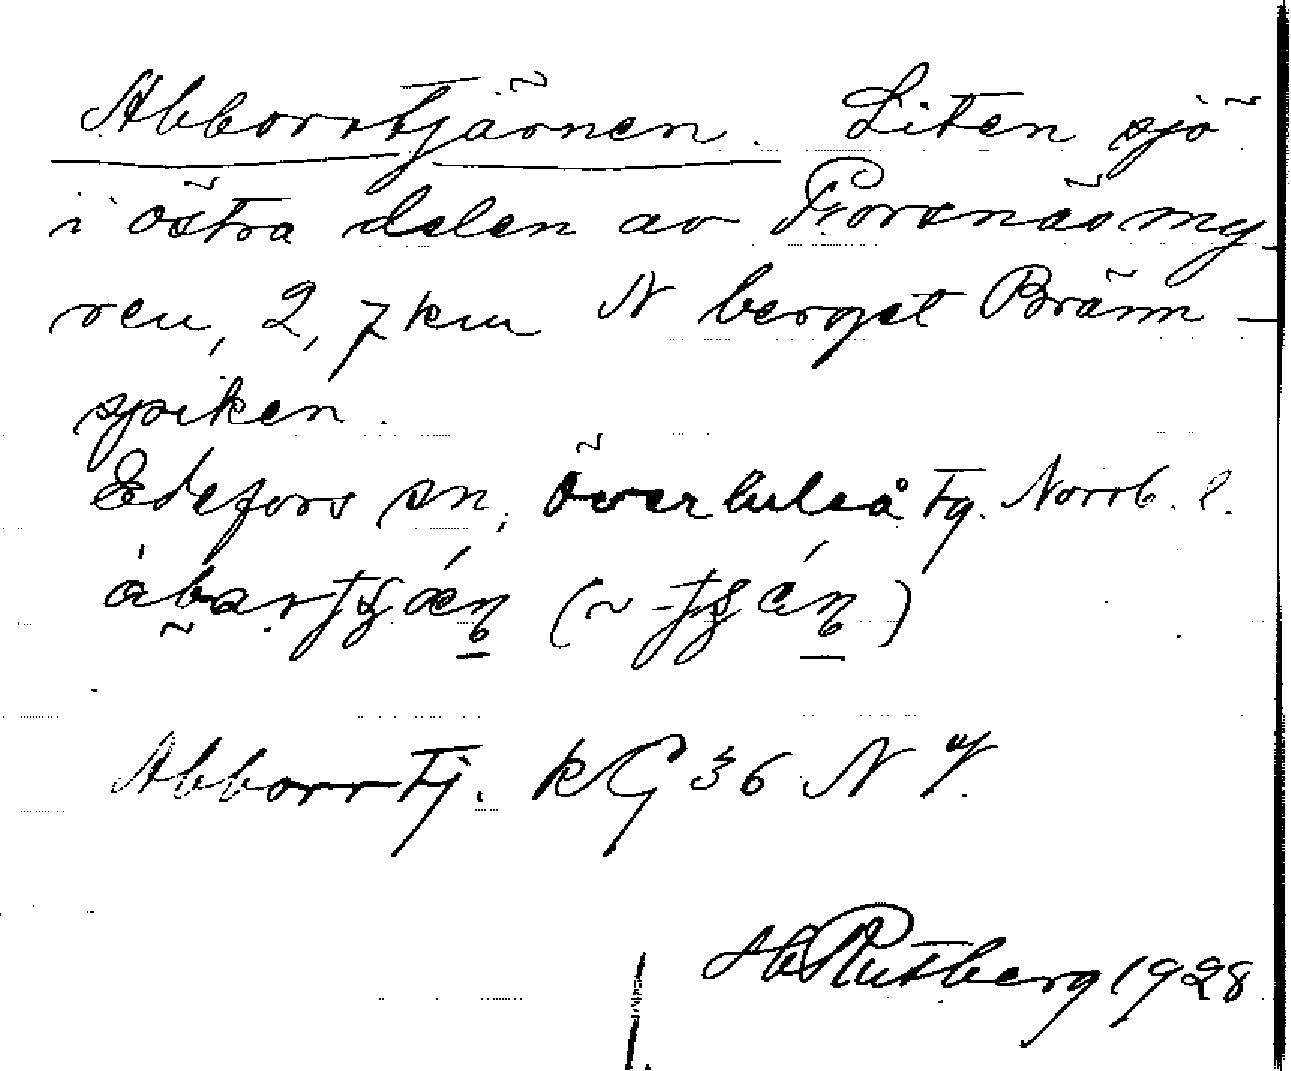 Abborrtjärnen. Liten sjö
i östra delen av Porsnäsmy-
ren, 2,7 km N berget Bränn-
spiken.
Edefors sn, Överluleå tg. Norrb. l.
Abborrtj. kG 36 N
Rutberg 1928